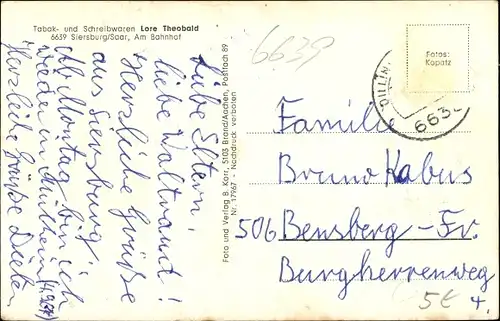 Tabak- und Schreibwaren Lore Theobald
6639 Siersburg/Saar, Am Bahnhof
6639
Fotos:
Kopatz
DILLIN
663
Liebe Eltern,
liebe Waltraud!
Herzliche Grüße
aus Siersburg.
Ab Montag bin ich
wieder in
Herzliche Grüße Dieter
Foto und Verlag B. Korr, 5103 Brand/Aachen, Postfach 89
Nr. 17967 - Nachdruck verboten
Familie
Bruno Kabus
506 Bensberg-Fr.
Burgherrenweg
4.
5€